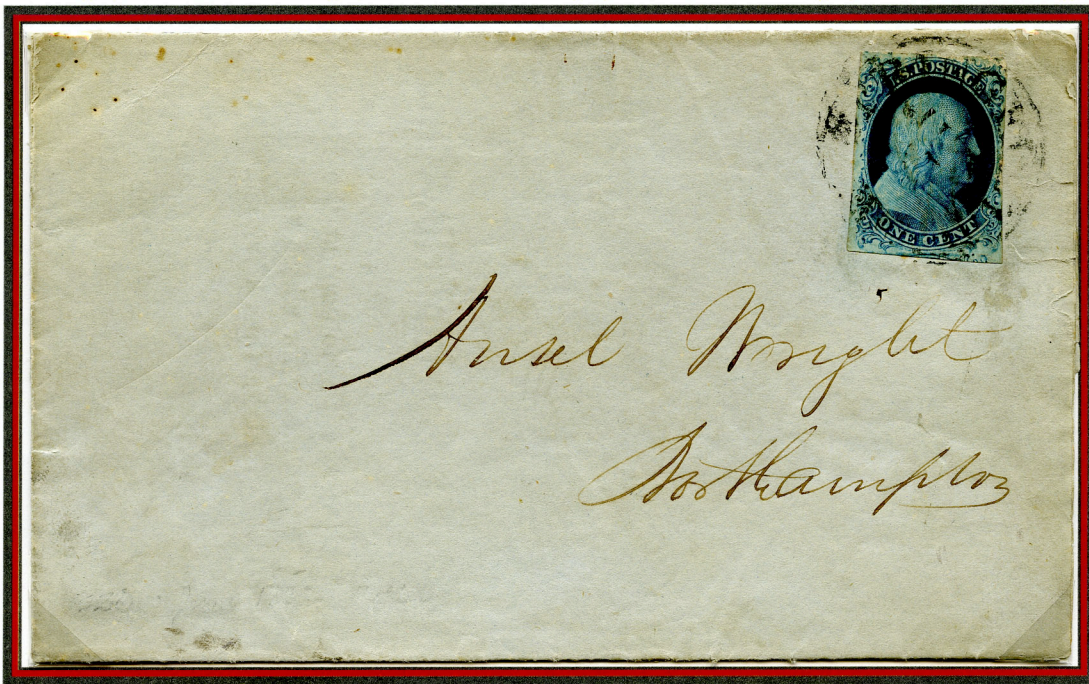 U.S. POSTAGE
ONE CENT
Ansel Wright
Northampton